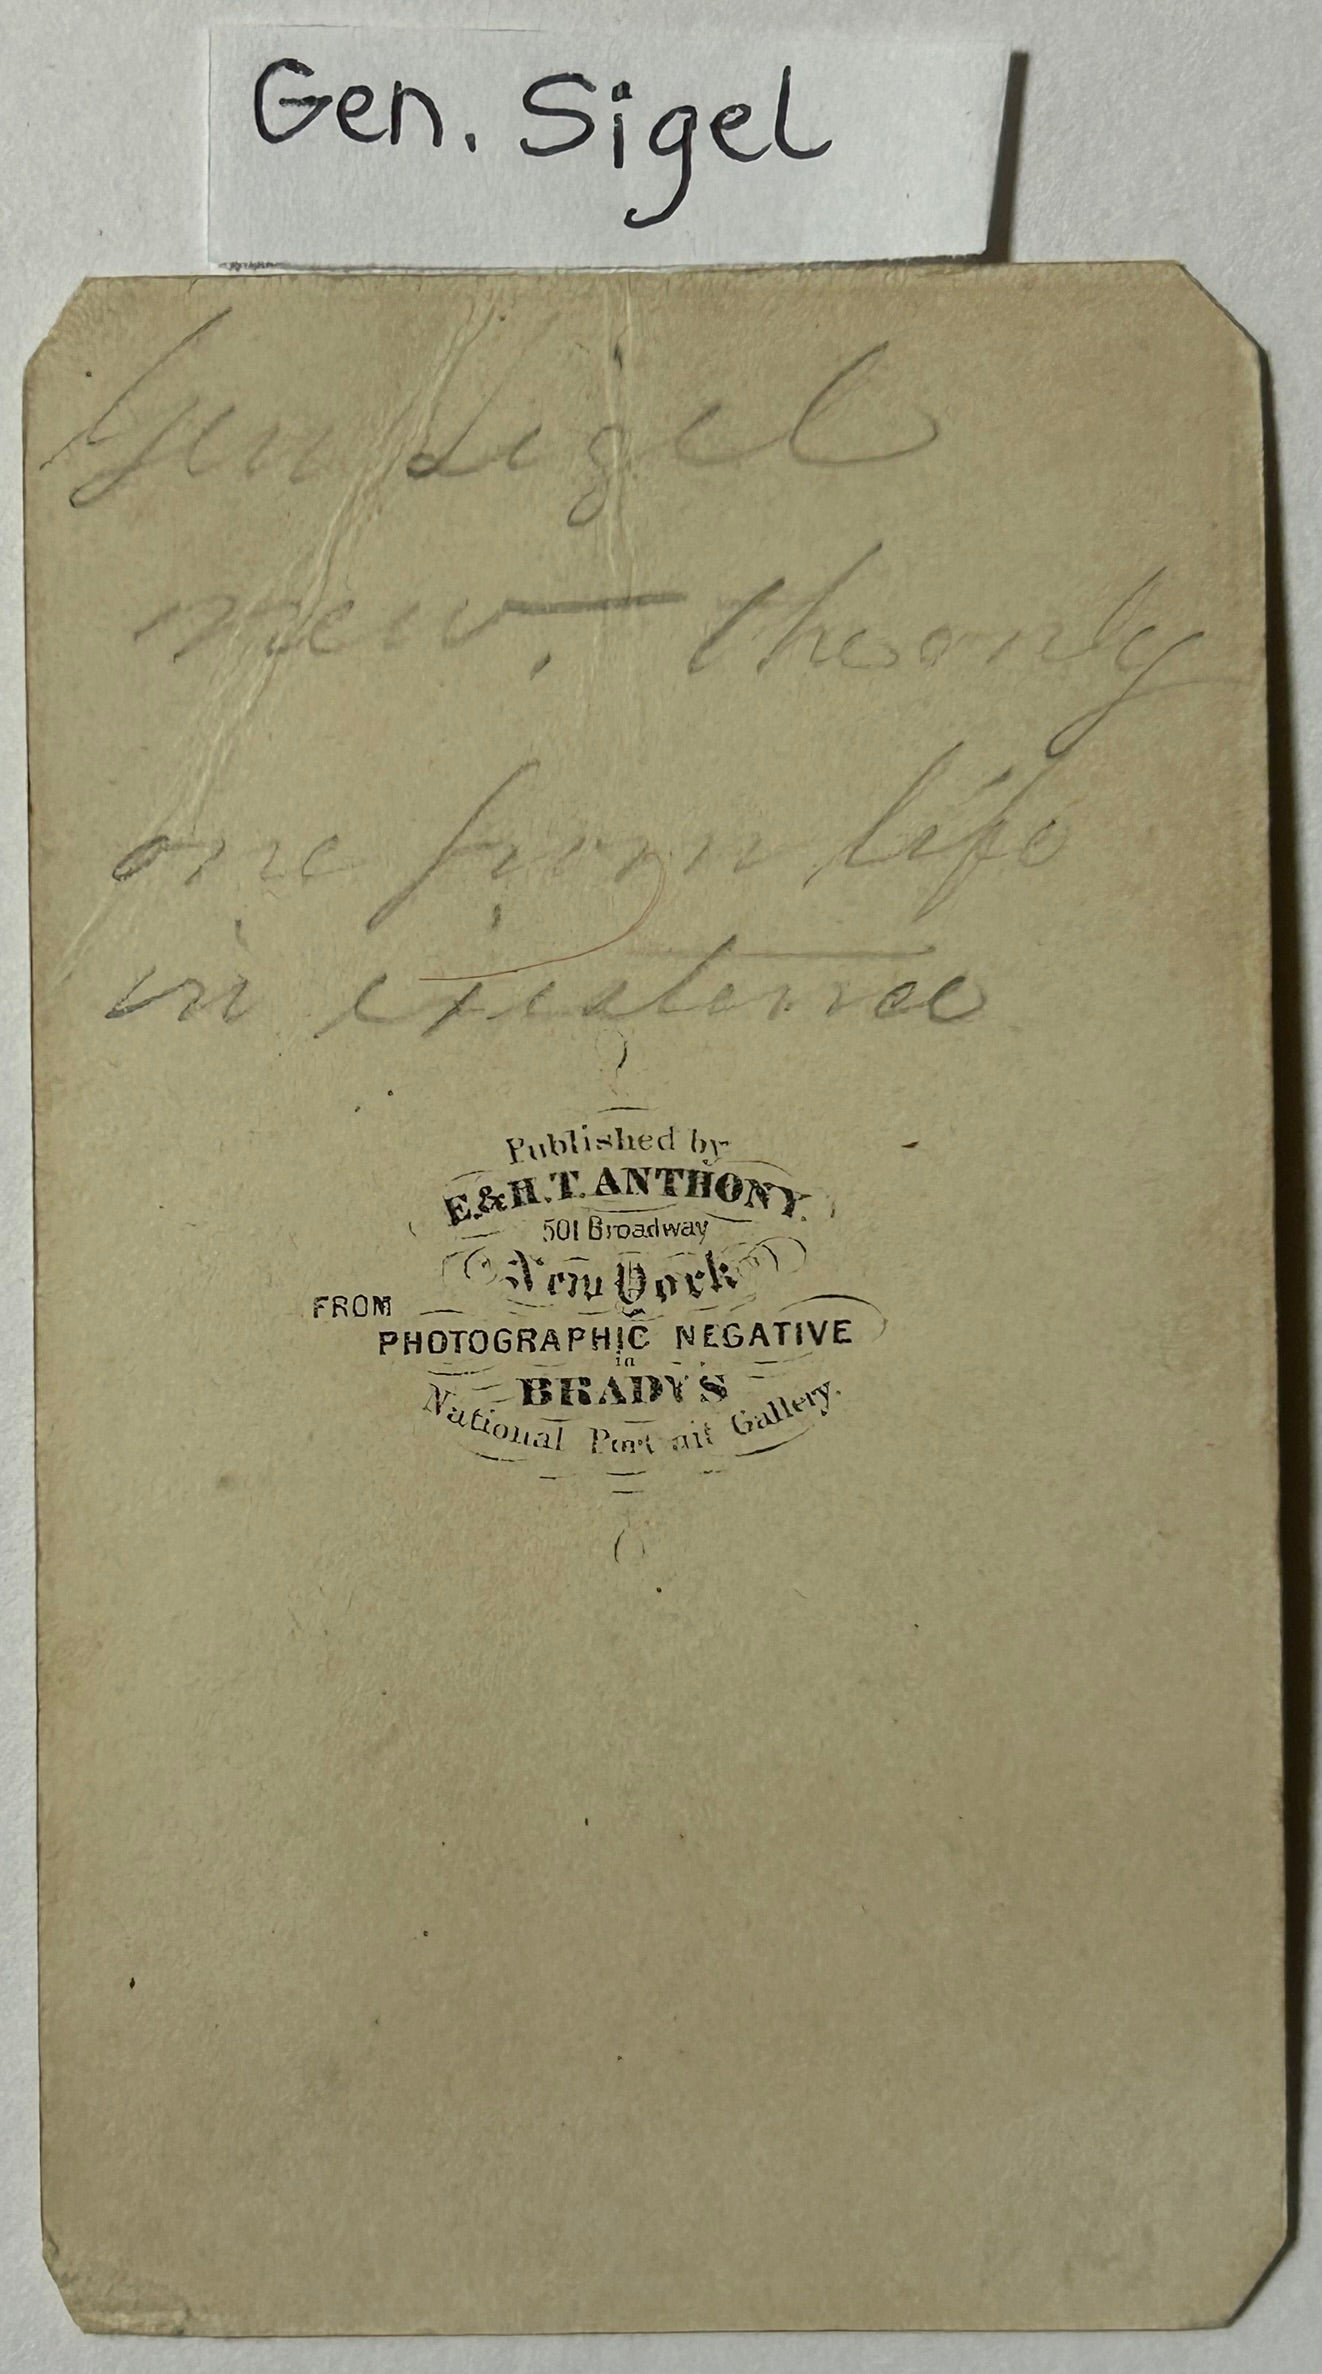 Gen. Sigel
Gen Sigel
new, — the only
one from life
in existence
Published by
E. & H. T. ANTHONY.
501 Broadway
New York
FROM
PHOTOGRAPHIC NEGATIVE
in
BRADY'S
National Portrait Gallery.